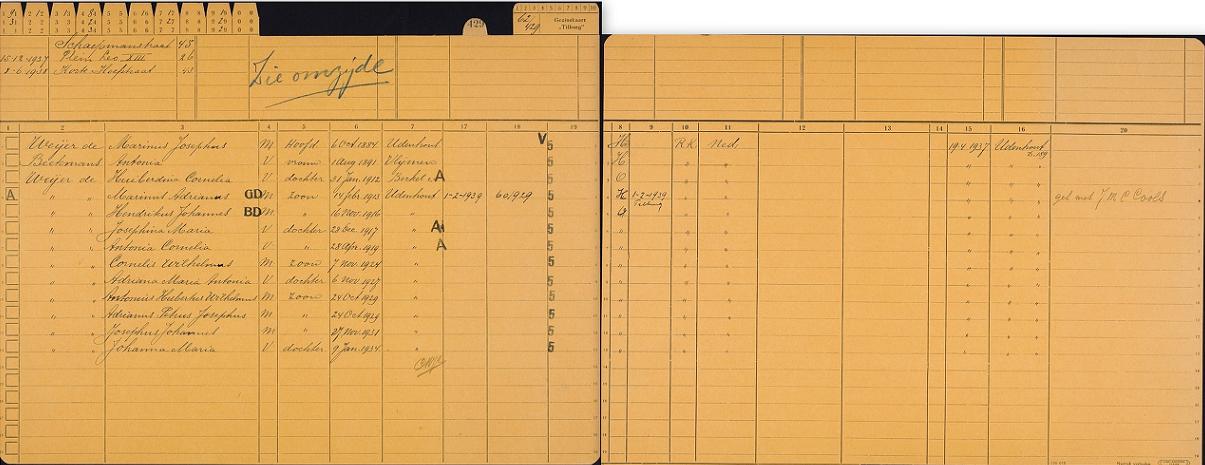 429
62/429
Gezinskaart
„Tilburg"
Schaepmanstraat 45
15-12-1937 Plein Leo XIII 26
8-6-1938 Korte Hoefstraat 43
Zie omzijde
1 2 3 4 5 6 7 17 18 19
8 9 10 11 12 13 14 15 16 20
Weijer de Marinus Josephus M Hoofd 6 Oct 1884 Udenhout V 5 H R.K. Ned. 19-4 1937 Udenhout
Beekmans Antonia V vrouw 1 Aug 1891 Vlijmen 5 H " " " " "
Weijer de Huiberdina Cornelia V dochter 31 Jan. 1912 Berkel A 5 " " " " "
A " " Marinus Adrianus GD M zoon 14 febr 1913 Udenhout 1-2-1939 60/929 5 H 1-2-1939 " " " " " geh met J M C Cools
Tilburg
" " Hendrikus Johannes BD M " 16 Nov. 1916 " 5 " " " " "
" " Josephina Maria V dochter 28 Dec. 1917 " A 5 " " " " " "
" " Antonia Cornelia V " 28 Apr. 1919 " A 5 " " " " " "
" " Cornelis Wilhelmus M zoon 7 Nov. 1924 " 5 " " " " " "
" " Adriana Maria Antonia V dochter 6 Nov 1927 " 5 " " " " " "
" " Antonius Hubertus Wilhelmus M zoon 24 Oct 1929 " 5 " " " " " "
" " Adrianus Petrus Josephus M " 24 Oct 1929 " 5 " " " " " "
" " Josephus Johannes M " 27 Nov. 1931 " 5 " " " " " "
" " Johanna Maria V dochter 9 Jan. 1934 " 5 " " " " " "